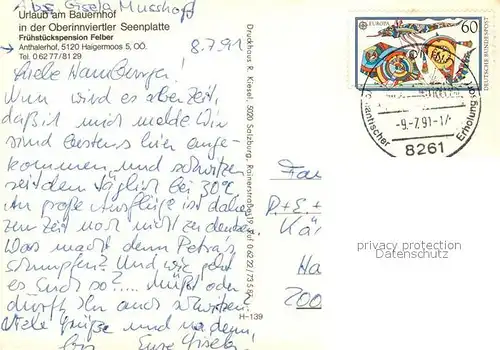 Abs. Gisela Musshoff
Urlaub am Bauernhof
in der Oberinnviertler Seenplatte
Frühstückspension Felber
Anthalerhof, 5120 Haigermoos 5, OÖ.
Tel. 0 62 77/81 29
8.7.91
Liebe Hamberger!
Nun wird es aber Zeit,
daß ich mich melde. Wir
sind bestens hier ange-
kommen und schwitzen
seitdem täglich bei 30°C.
An große Ausflüge ist daher
zur Zeit noch nicht zu denken.
Was macht denn Petra's
schnupfen? Und wie geht
es Euch so? .... müßt oder
dürft Ihr auch schwitzen?
Viele Grüße und
Eure Gisela
Druckhaus R. Kiesel, 5020 Salzburg, Rainerstraße 19, Ruf 0 62 22/73 5
H-139
EUROPA
60
DEUTSCHE BUNDESPOST
-9.-7.91-17
8261
Erholung
Fam
P+E+
Kä
Ha
2000
privacy protection
Datenschutz